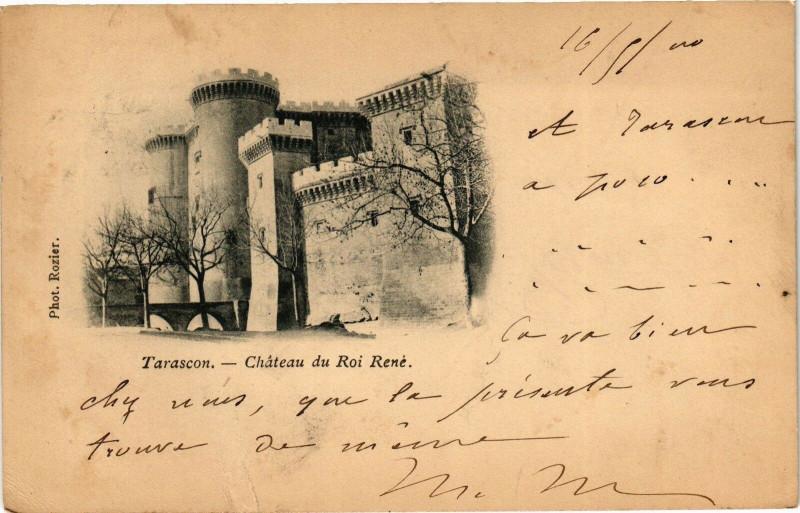 16/5/00
A Tarascon
a
. . .
. . . .
. . . . .
Phot. Rozier.
Tarascon. — Château du Roi René.
Ça va bien
chez nous, que la présente vous
trouve de même
M. M